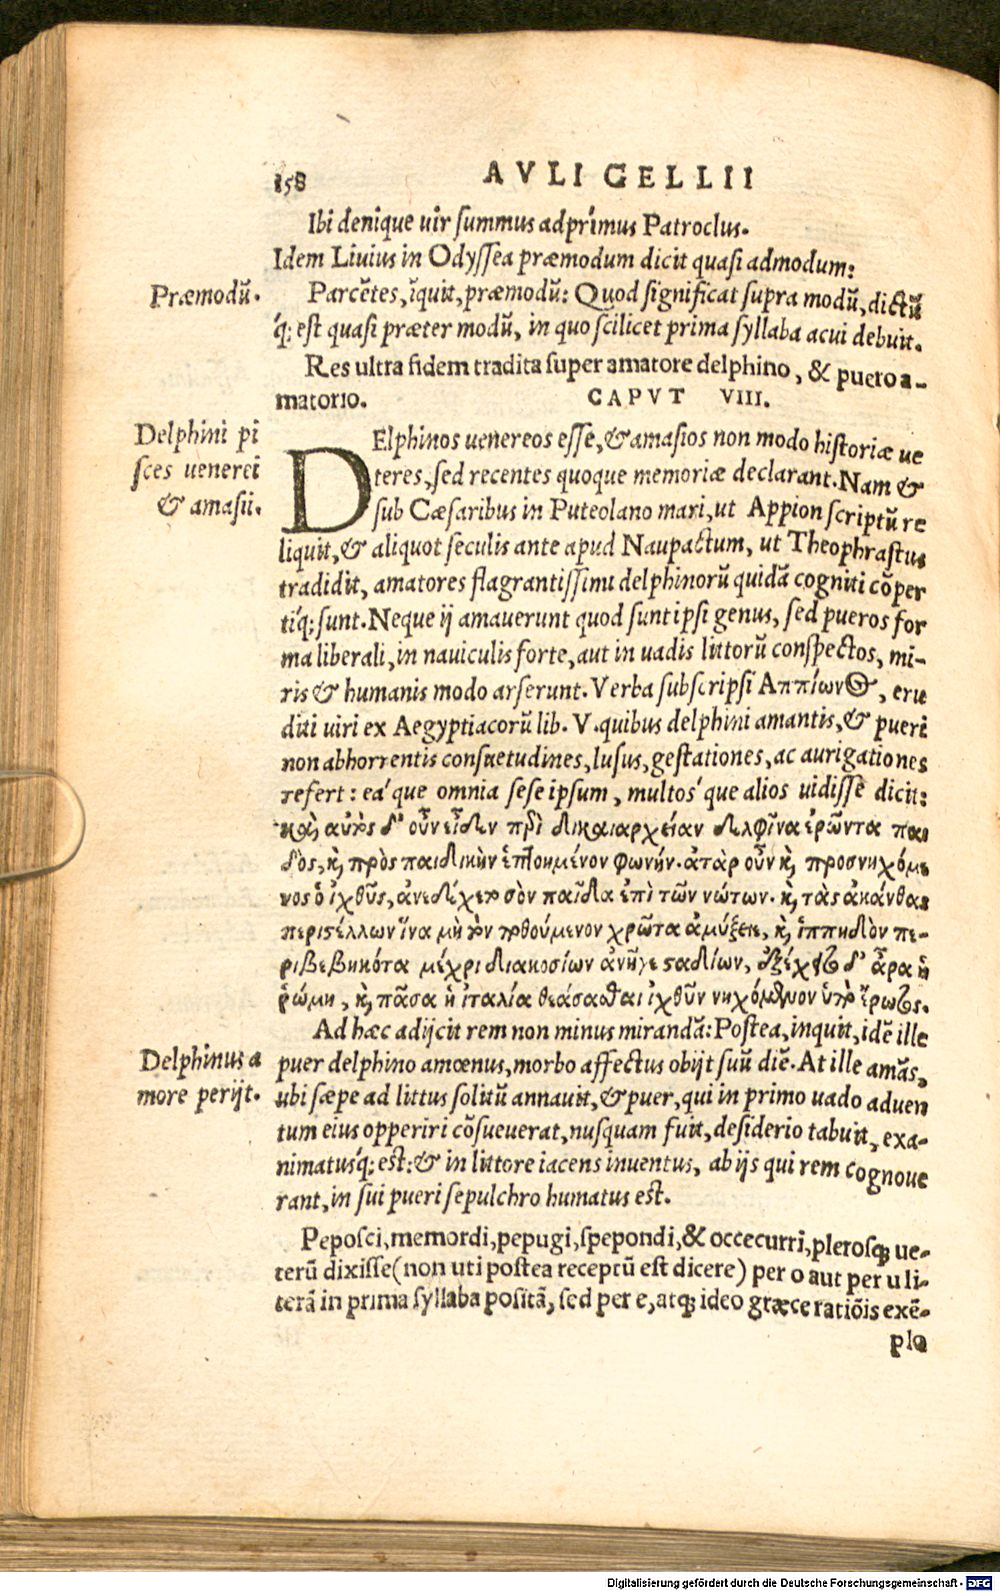 158 AVLI GELLII
Ibi denique uir summus adprimus Patroclus.
Idem Liuius in Odyssea præmodum dicit quasi admodum:
Præmodū.
Parcētes, īquit, præmodū: Quod significat supra modū, dictū
q́; est quasi præter modū, in quo scilicet prima syllaba acui debuit.
Res ultra fidem tradita super amatore delphino, & puero a-
matorio. CAPVT VIII.
Delphini pi
sces uenerei
& amasii.
DElphinos uenereos esse, & amasios non modo historiæ ue
teres, sed recentes quoque memoriæ declarant. Nam &
sub Cæsaribus in Puteolano mari, ut Appion scriptū re
liquit, & aliquot seculis ante apud Naupactum, ut Theophrastus
tradidit, amatores flagrantissimi delphinorū quidā cogniti cōper
tiq́; sunt. Neque ij amauerunt quod sunt ipsi genus, sed pueros for
ma liberali, in nauiculis forte, aut in uadis littorū conspectos, mi-
ris & humanis modo arserunt. Verba subscripsi Ἀππίωνος, eru
diti uiri ex Aegyptiacorū lib. V. quibus delphini amantis, & pueri
non abhorrentis consuetudines, lusus, gestationes, ac aurigationes
refert: ea'que omnia sese ipsum, multos'que alios uidisse dicit:
καὶ αὐτὸς δ' οὖν εἶδεν περὶ δικαιαρχείαν δελφῖνα ἐρῶντα παι
δὸς, καὶ πρὸς παιδικὴν ἐπτοημένον φωνήν. ἀτὰρ οὖν καὶ προσνηχόμε
νος ὁ ἰχθῦς, ἀνεδέχετο τὸν παῖδα ἐπὶ τῶν νώτων. καὶ τὰς ἀκάνθας
περιστέλλων ἵνα μὴ τὸν ποθούμενον χρῶτα ἀμύξειε, καὶ ἱππηδὸν πε-
ριβεβηκότα μέχρι διακοσίων ἀνῆγε σταδίων, ἐξέχεῖτο δ' ἆρα ἡ
ῥώμη, καὶ πᾶσα ἡ ἰταλία θεάσασθαι ἰχθῦν νηχόμενον ὑπὸ ἔρωτος.
Ad hæc adijcit rem non minus mirandā: Postea, inquit, idē ille
Delphinus a
more perijt.
puer delphino amœnus, morbo affectus obijt suū diē. At ille amās,
ubi sæpe ad littus solitū annauit, & puer, qui in primo uado aduen
tum eius opperiri cōsueuerat, nusquam fuit, desiderio tabuit, exa-
nimatusq́; est: & in littore iacens inuentus, ab ijs qui rem cognoue
rant, in sui pueri sepulchro humatus est.
Peposci, memordi, pepugi, spepondi, & occecurri, plerosq; ue-
terū dixisse (non uti postea receptū est dicere) per o aut per u li-
terā in prima syllaba positā, sed per e, atq; ideo græce ratiōis exē-
plo
Digitalisierung gefördert durch die Deutsche Forschungsgemeinschaft - DFG